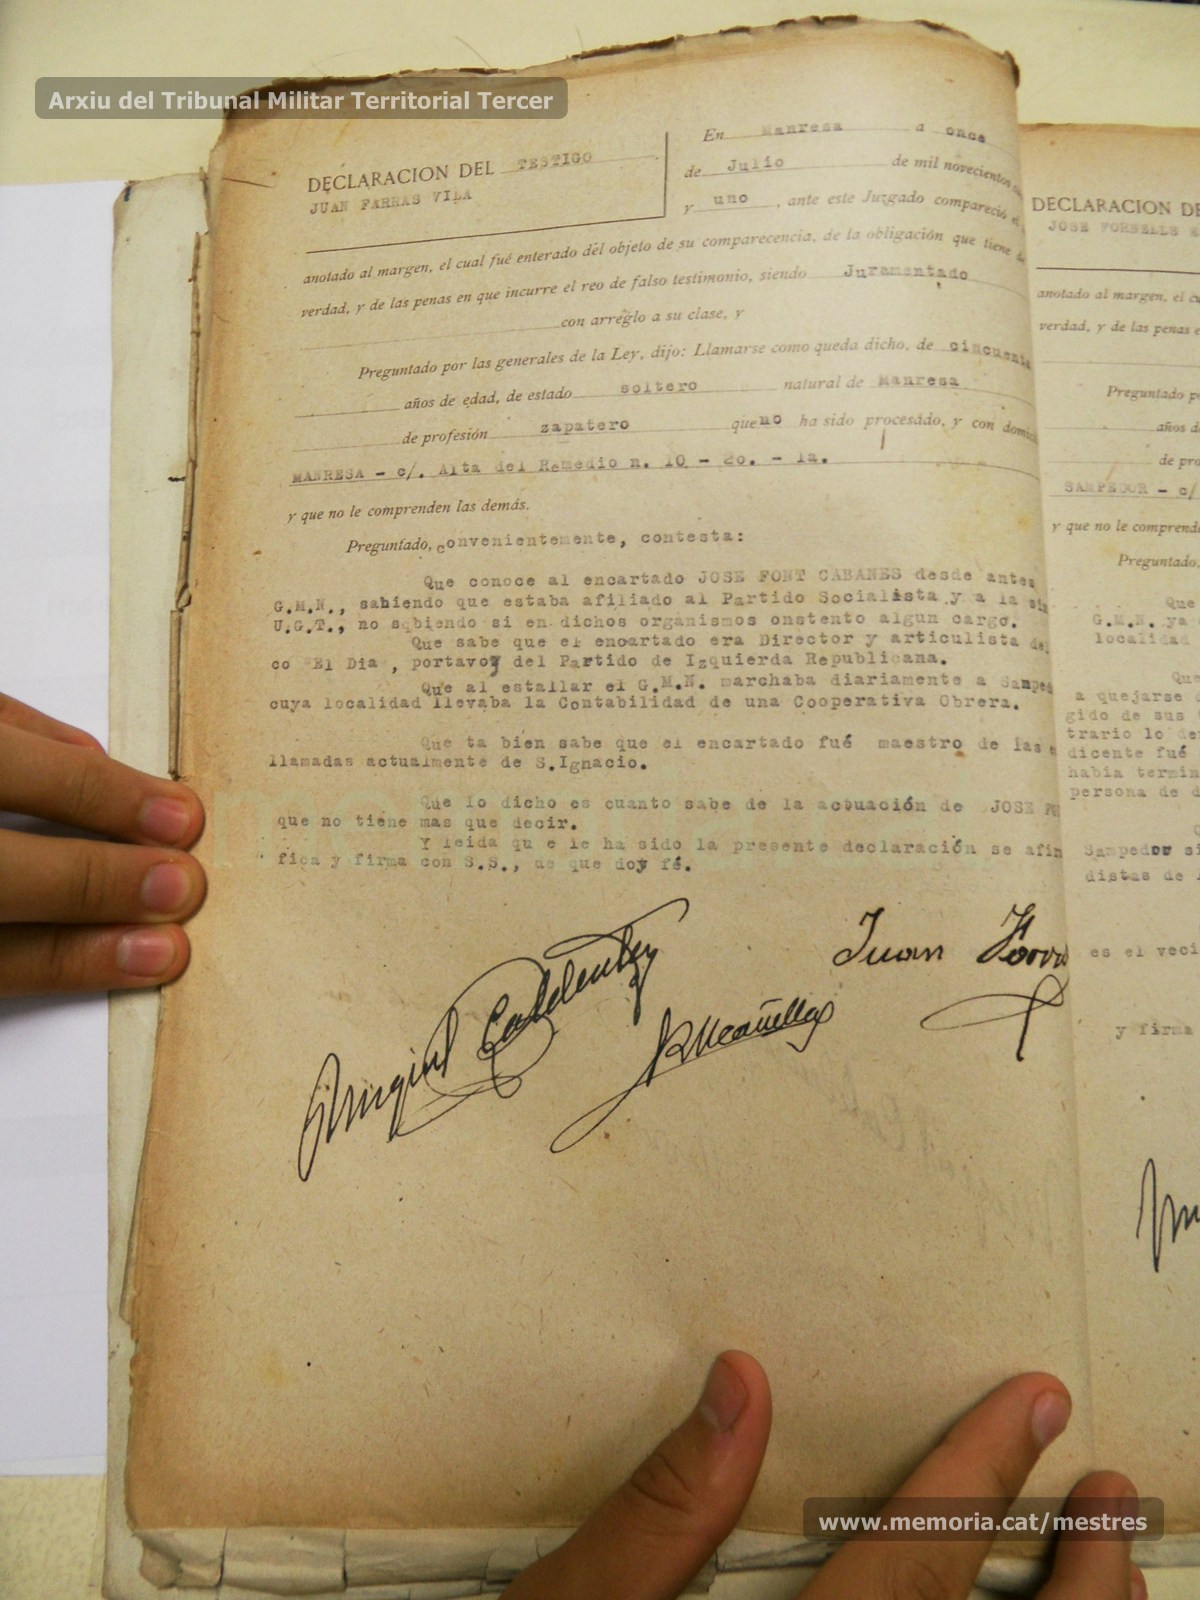 Arxiu del Tribunal Militar Territorial Tercer
DECLARACION DEL TESTIGO
JUAN FARRAS VILA
En Manresa a once
de Julio de mil novecientos
y uno, ante este Juzgado compareció el
anotado al margen, el cual fué enterado del objeto de su comparecencia, de la obligación que tiene de
verdad, y de las penas en que incurre el reo de falso testimonio, siendo Juramentado
con arreglo a su clase, y
Preguntado por las generales de la Ley, dijo: Llamarse como queda dicho, de cincuenta
años de edad, de estado soltero natural de Manresa
de profesión zapatero que no ha sido procesado, y con domici
MANRESA - c/. Alta del Remedio n. 10 - 2o. - 1a.
y que no le comprenden las demás.
Preguntado, convenientemente, contesta:
Que conoce al encartado JOSE FONT CABANES desde antes
G.M.N., sabiendo que estaba afiliado al Partido Socialista y a la sin
U.G.T., no sabiendo si en dichos organismos onstento algun cargo.
Que sabe que el encartado era Director y articulista del
co El Dia, portavoz del Partido de Izquierda Republicana.
Que al estallar el G.M.N. marchaba diariamente a Sampe
cuya localidad llevaba la Contabilidad de una Cooperativa Obrera.
Que ta bien sabe que el encartado fué maestro de las
llamadas actualmente de S.Ignacio.
Que lo dicho es cuanto sabe de la actuación de JOSE F
que no tiene mas que decir.
Y leida qu e le ha sido la presente declaración se afir
fica y firma con S.S., de que doy fé.
Miguel Caldentey
Juan Farra
DECLARACION DE
JOSE FORSELLS
anotado al margen, el cu
verdad, y de las penas e
Preguntado p
años d
de pro
SAMPEDOR - c/
y que no le comprend
Preguntado,
Que
G.M.N. ya
localidad
Que
a quejarse
gido de sus
trario lo de
dicente fué
habia termin
persona de d
Sampedor si
distas de l
es el veci
y firma
www.memoria.cat/mestres